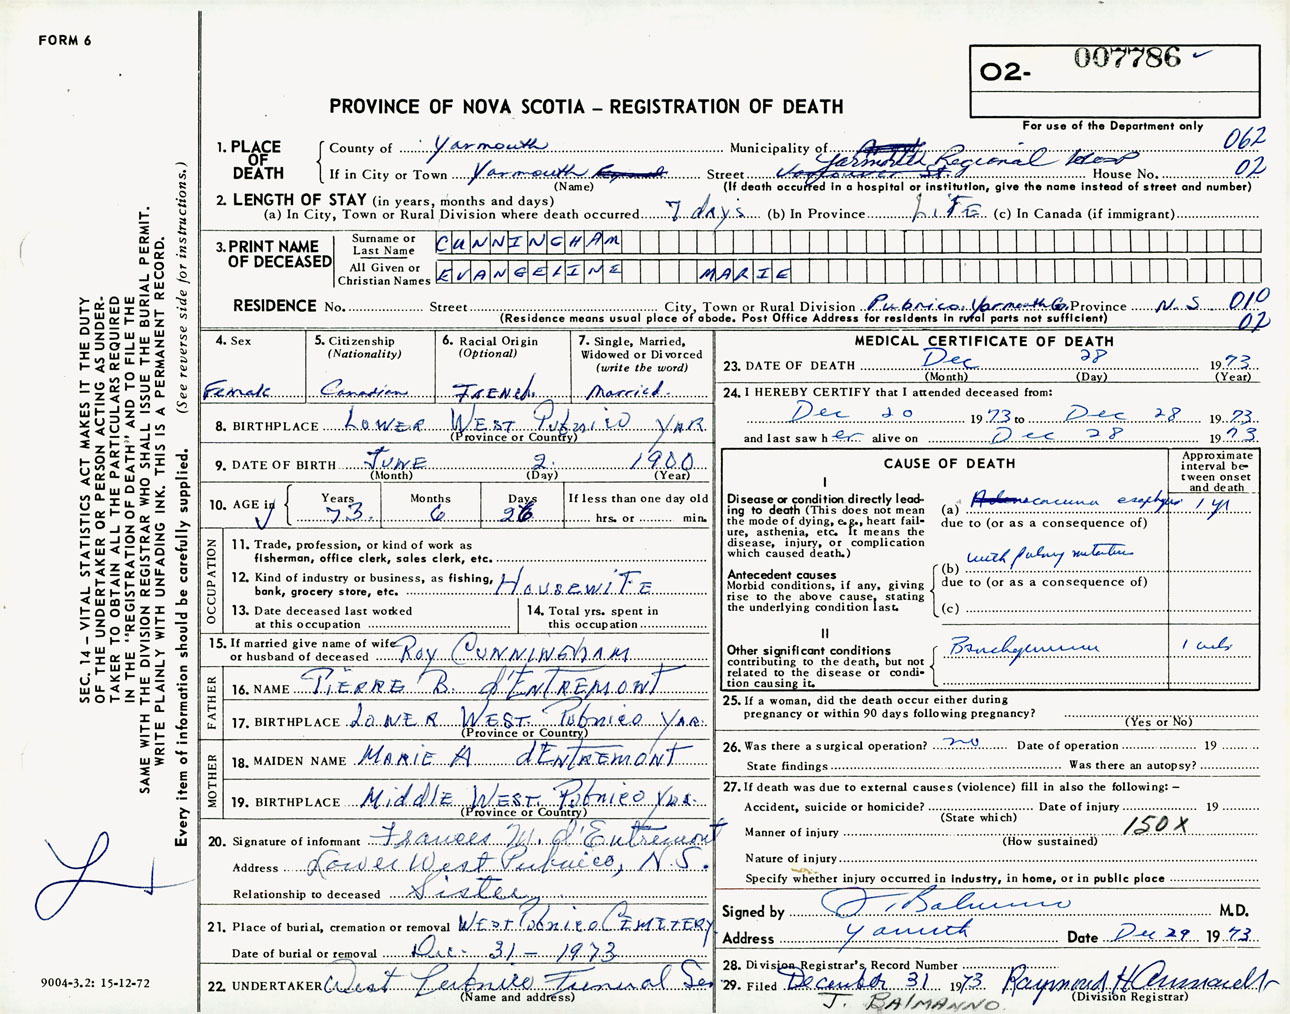 FORM 6
02- 007786
For use of the Department only
PROVINCE OF NOVA SCOTIA – REGISTRATION OF DEATH
062
02
1. PLACE OF DEATH
County of Yarmouth Municipality of
If in City or Town Yarmouth Street Yarmouth Regional Hosp House No.
(Name) (If death occurred in a hospital or institution, give the name instead of street and number)
2. LENGTH OF STAY (in years, months and days)
(a) In City, Town or Rural Division where death occurred 7 days (b) In Province LIFE (c) In Canada (if immigrant)
3. PRINT NAME OF DECEASED
Surname or Last Name CUNNINGHAM
All Given or Christian Names EVANGELINE MARIE
RESIDENCE No. Street City, Town or Rural Division Pubnico, Yarmouth Co. Province N.S. 010
(Residence means usual place of abode. Post Office Address for residents in rural parts not sufficient) 02
4. Sex Female
5. Citizenship (Nationality) Canadian
6. Racial Origin (Optional) FRENCH
7. Single, Married, Widowed or Divorced (write the word) Married
8. BIRTHPLACE LOWER WEST Pubnico YAR.
(Province or Country)
9. DATE OF BIRTH JUNE 2. 1900
(Month) (Day) (Year)
10. AGE in Years 73. Months 6 Days 26 If less than one day old hrs. or min.
OCCUPATION
11. Trade, profession, or kind of work as fisherman, office clerk, sales clerk, etc.
12. Kind of industry or business, as fishing, bank, grocery store, etc. HOUSEWIFE
13. Date deceased last worked at this occupation
14. Total yrs. spent in this occupation
15. If married give name of wife or husband of deceased ROY CUNNINGHAM
FATHER
16. NAME PIERRE B. d'ENTREMONT
17. BIRTHPLACE LOWER WEST. Pubnico YAR.
(Province or Country)
MOTHER
18. MAIDEN NAME MARIE A d'ENTREMONT
19. BIRTHPLACE MiddlE WEST. Pubnico YAR.
(Province or Country)
20. Signature of informant Frances M. d'Entremont
Address Lower West Pubnico, N.S.
Relationship to deceased Sister
21. Place of burial, cremation or removal WEST Pubnico CEMETERY
Date of burial or removal Dec - 31 - 1973
22. UNDERTAKER West Pubnico Funeral Ser
(Name and address)
MEDICAL CERTIFICATE OF DEATH
23. DATE OF DEATH Dec 28 1973
(Month) (Day) (Year)
24. I HEREBY CERTIFY that I attended deceased from:
Dec 20 1973 to Dec 28 1973
and last saw her alive on Dec 28 1973
CAUSE OF DEATH
Approximate interval between onset and death
I
Disease or condition directly leading to death (This does not mean the mode of dying, e.g., heart failure, asthenia, etc. It means the disease, injury, or complication which caused death.)
(a) esophagus 1 yr
due to (or as a consequence of)
Antecedent causes
Morbid conditions, if any, giving rise to the above cause, stating the underlying condition last.
(b) with
due to (or as a consequence of)
(c)
II
Other significant conditions contributing to the death, but not related to the disease or condition causing it.
25. If a woman, did the death occur either during pregnancy or within 90 days following pregnancy?
(Yes or No)
26. Was there a surgical operation? no Date of operation 19
State findings Was there an autopsy?
27. If death was due to external causes (violence) fill in also the following: –
Accident, suicide or homicide? Date of injury 19
(State which)
Manner of injury 150X
(How sustained)
Nature of injury
Specify whether injury occurred in industry, in home, or in public place
Signed by J. Balmanno M.D.
Address Yarmouth Date Dec 29 1973
28. Division Registrar's Record Number
29. Filed December 31 1973 Raymond H
(Division Registrar)
J. BALMANNO.
SEC. 14 – VITAL STATISTICS ACT MAKES IT THE DUTY
OF THE UNDERTAKER OR PERSON ACTING AS UNDER-
TAKER TO OBTAIN ALL THE PARTICULARS REQUIRED
IN THE "REGISTRATION OF DEATH" AND TO FILE THE
SAME WITH THE DIVISION REGISTRAR WHO SHALL ISSUE THE BURIAL PERMIT.
WRITE PLAINLY WITH UNFADING INK. THIS IS A PERMANENT RECORD.
Every item of information should be carefully supplied. (See reverse side for instructions.)
9004-3.2: 15-12-72